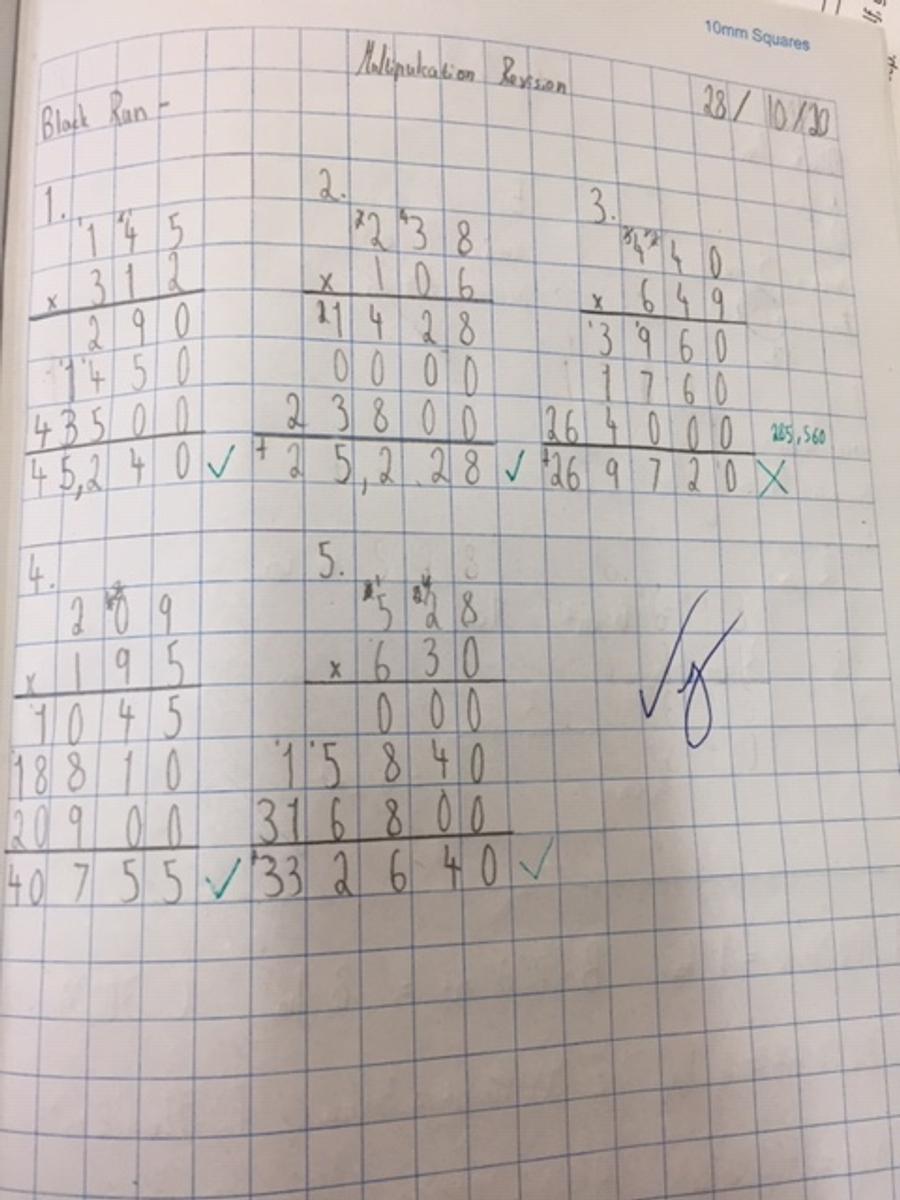 10mm Squares
Multipulcation Revision
28/10/20
Black Run -
1.
145
x 312
290
1450
43500
45,240 ✓
2.
238
x 106
1428
0000
23800
+ 25,228 ✓
3.
440
x 649
3960
1760
264000 285,560
+ 269720 X
4.
209
x 195
1045
18810
20900
40755 ✓
5.
528
x 630
000
15840
316800
+ 332640 ✓